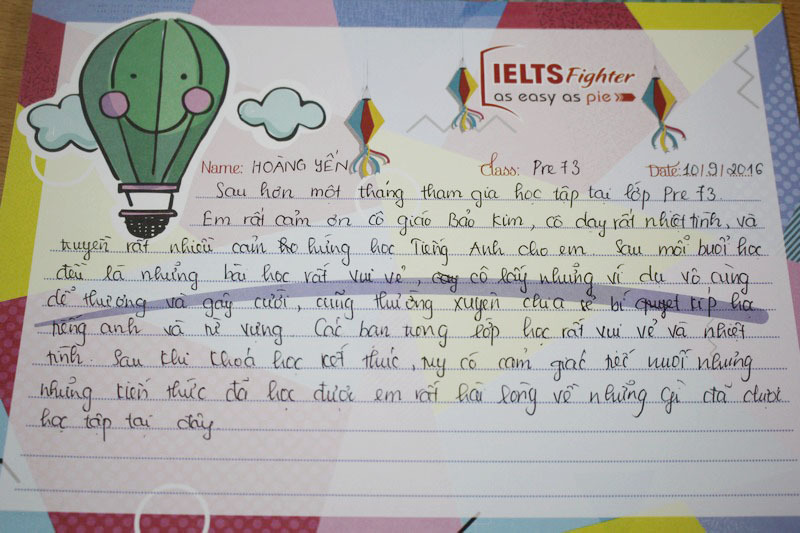 IELTS Fighter
as easy as pie
Name: HOÀNG YẾN Class: Pre 73 Date: 10/9/2016
Sau hơn một tháng tham gia học tập tại lớp Pre 73.
Em rất cảm ơn cô giáo Bảo Kim, cô dạy rất nhiệt tình, và
truyền rất nhiều cảm hứng học Tiếng Anh cho em. Sau mỗi buổi học
đều là những bài học rất vui vẻ, cô lấy những ví dụ vô cùng
dể thương và gây cười, cũng thường xuyên chia sẻ bí quyết học
tiếng anh và từ vựng. Các bạn trong lớp học rất vui vẻ và nhiệt
tình. Sau khi khoá học kết thúc, tuy có cảm giác tiếc nuối nhưng
những kiến thức đã học được em rất hài lòng về những gì đã được
học tập tại đây